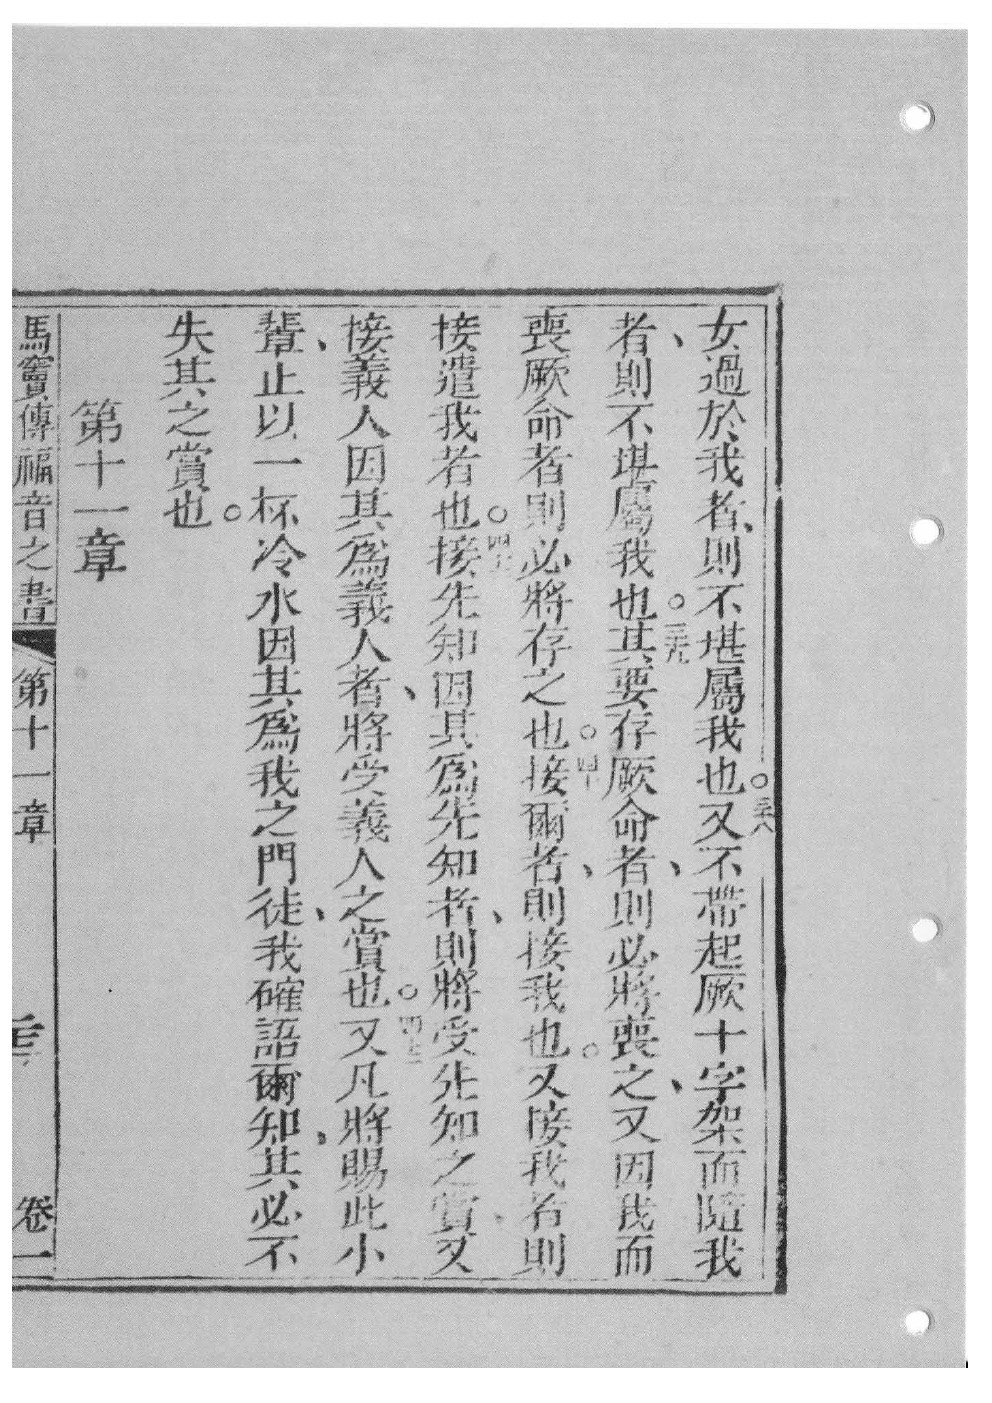 女過於我者、則不堪屬我也。三八又不帶起厥十字架而隨我
者、則不堪屬我也。三九其要存厥命者、則必將喪之、又因我而
喪厥命者則必將存之也。四十接爾者、則接我也。又接我者則
接遣我者也。四一接先知因其爲先知者、則將受先知之賞又
接義人因其爲義人者、將受義人之賞也。四二又凡將賜此小
輩、止以一杯冷水因其爲我之門徒、我確語爾知、其必不
失其之賞也。
第十一章
馬竇傳福音之書 第十一章 卷一